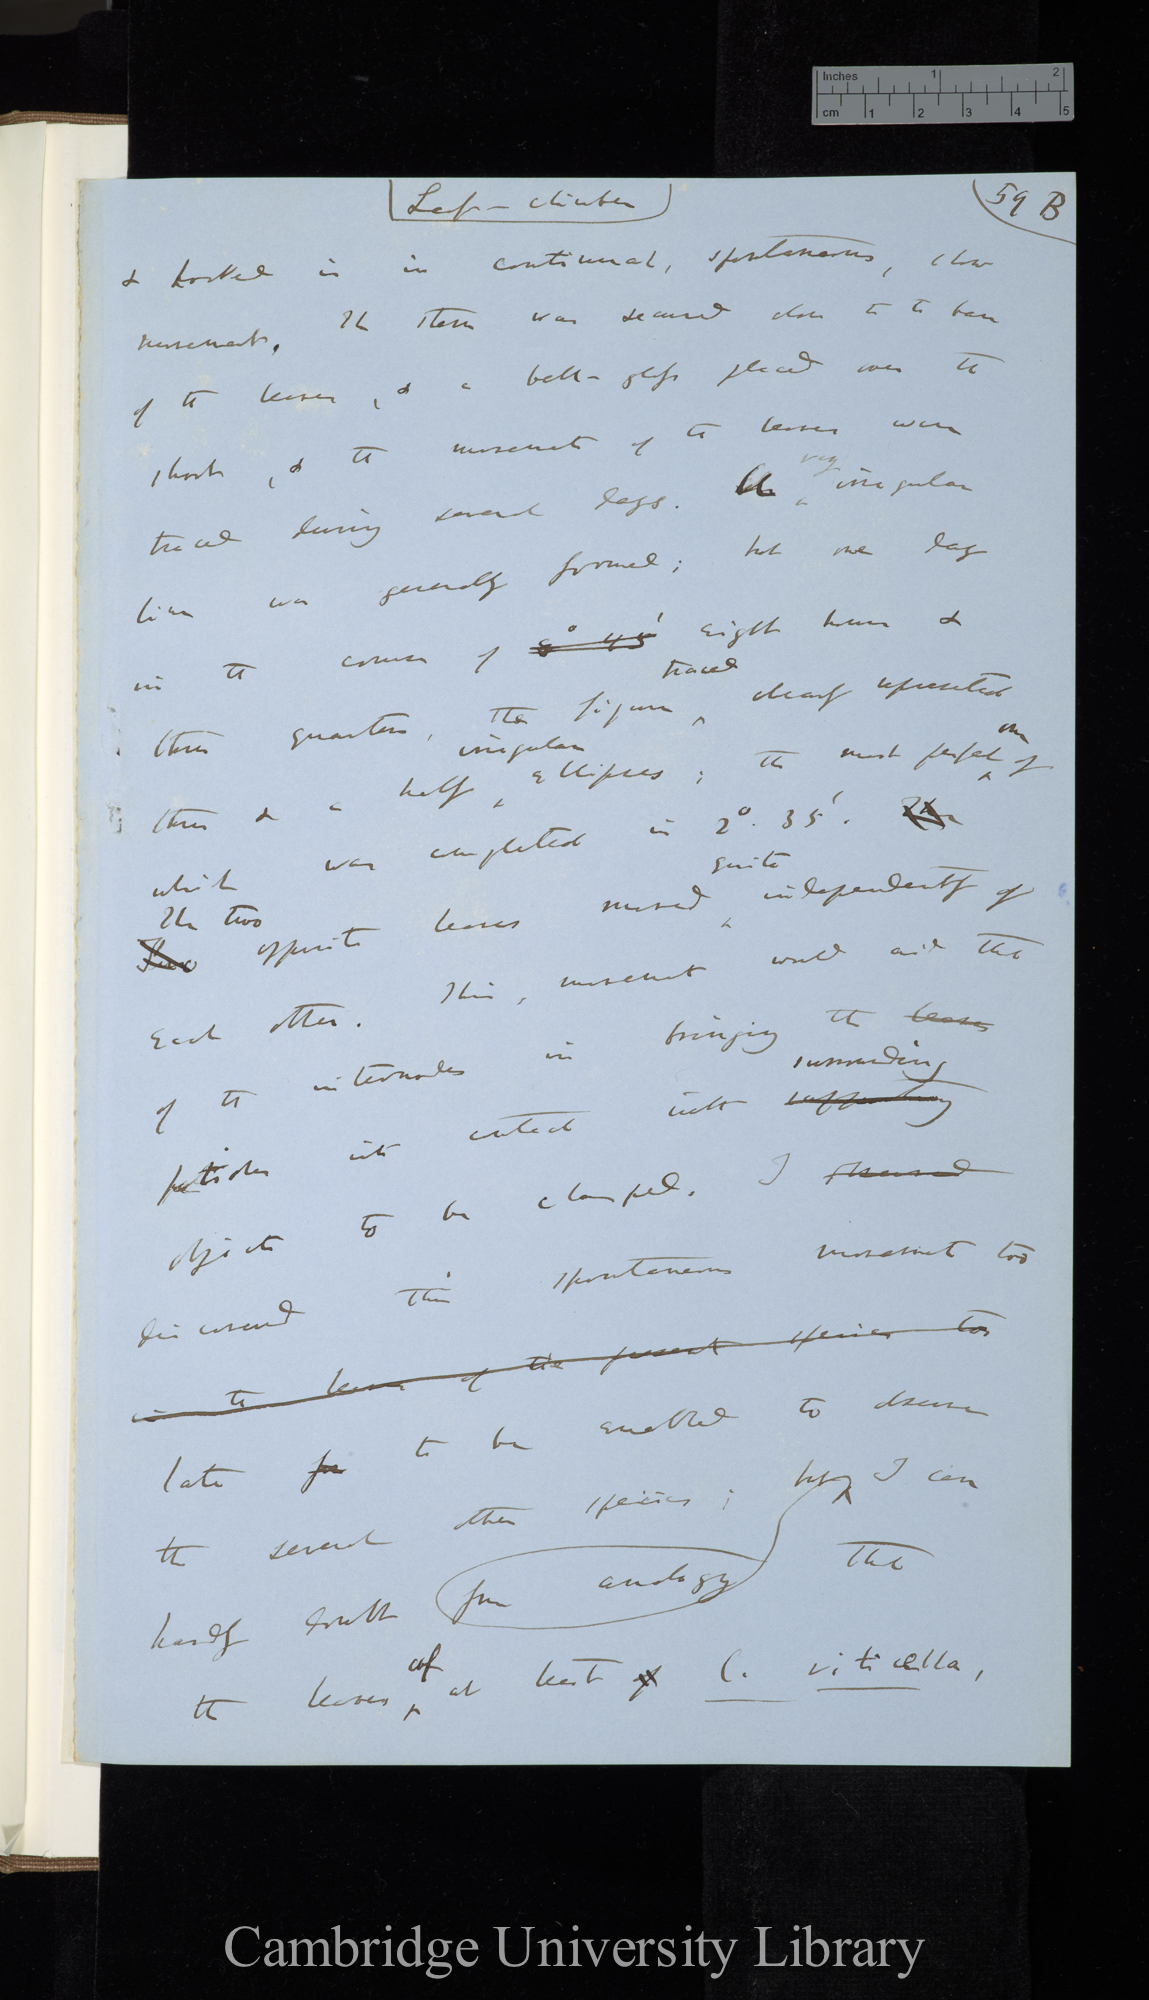 Inches 1 2
cm 1 2 3 4 5
Leaf-climbers
59 B
& hooked is in continual, spontaneous, slow
movement. The stem was secured close to the base
of the leaves, & a bell-glass placed over the
shoot, & the movements of the leaves were
very
traced during several days. irregular
line was generally formed; but one day
in the course of 8° 45' eight hours &
traced
three quarters, the figure clearly represented
irregular one
three & a half ellipses; the most perfect of
which was completed in 2°. 35'.
quite
The two
Two opposite leaves moved independently of
each other. This, movement would aid that
of the internodes in bringing the leaves
surrounding
petioles into contact with supporting
objects to be clasped. I
discovered this spontaneous movement too
in the leaves of the present species too
late for to be enabled to observe
the several other species; but I can
hardly doubt from analogy that
of
the leaves at least of C. viticella,
Cambridge University Library